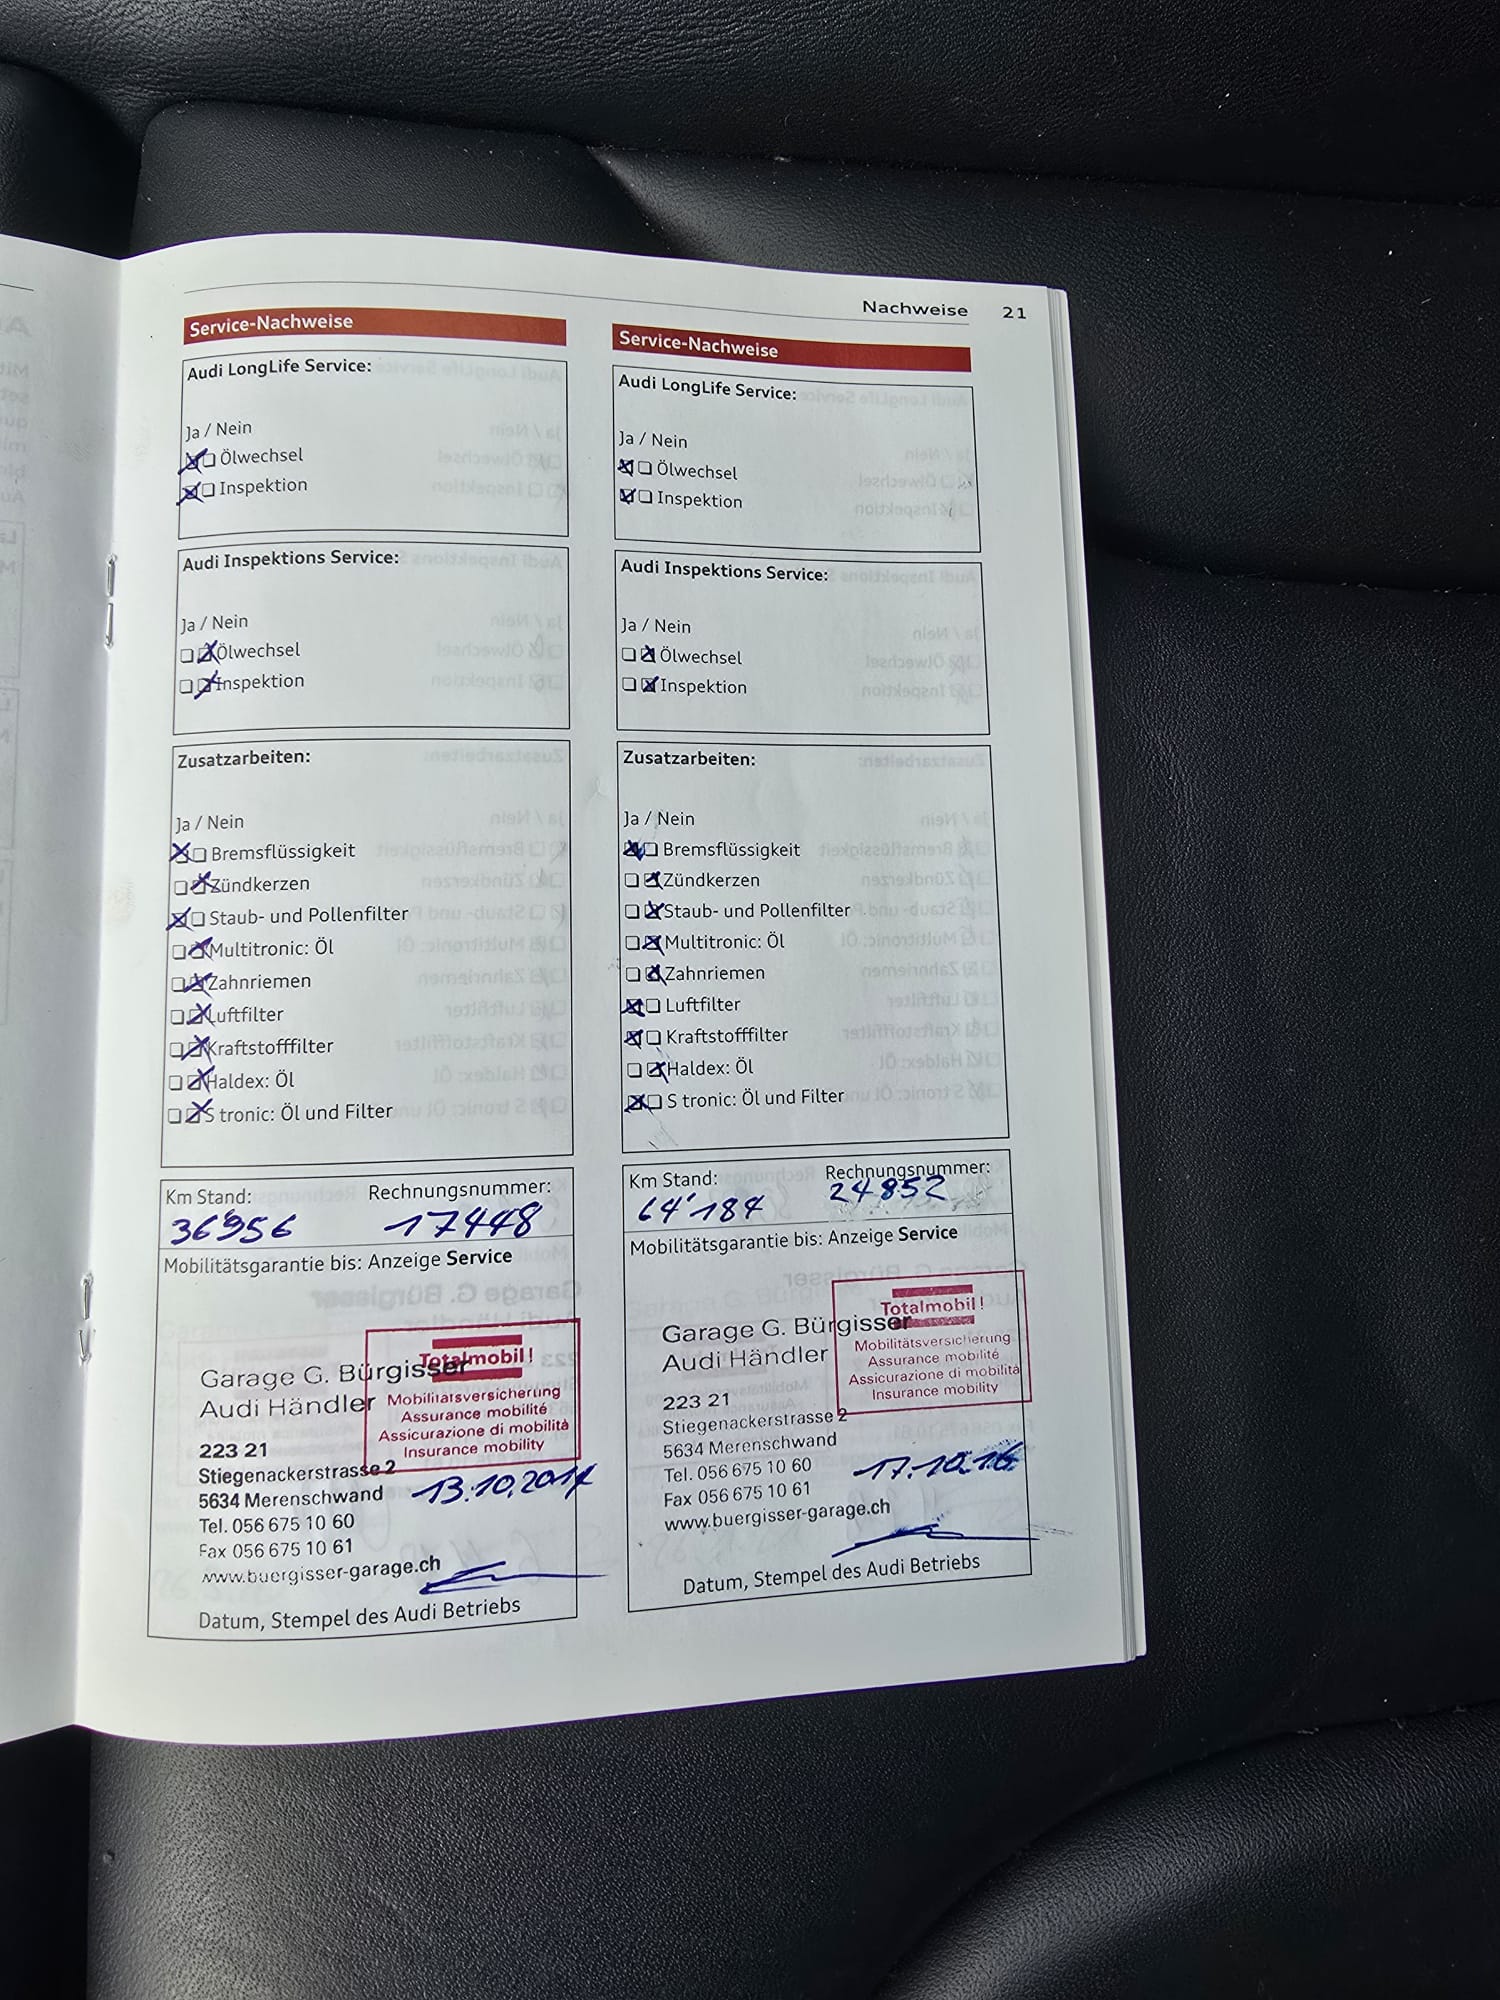 Nachweise 21
Service-Nachweise
Audi LongLife Service:
Ja / Nein
Ölwechsel
Inspektion
Audi Inspektions Service:
Ja / Nein
Ölwechsel
Inspektion
Zusatzarbeiten:
Ja / Nein
Bremsflüssigkeit
Zündkerzen
Staub- und Pollenfilter
Multitronic: Öl
Zahnriemen
Luftfilter
Kraftstofffilter
Haldex: Öl
S tronic: Öl und Filter
Km Stand: Rechnungsnummer:
36'956 17448
Mobilitätsgarantie bis: Anzeige Service
Totalmobil!
Mobilitätsversicherung
Assurance mobilité
Assicurazione di mobilità
Insurance mobility
Garage G. Bürgisser
Audi Händler
223 21
Stiegenackerstrasse 2
5634 Merenschwand
Tel. 056 675 10 60
Fax 056 675 10 61
www.buergisser-garage.ch
13.10.2014
Datum, Stempel des Audi Betriebs
Service-Nachweise
Audi LongLife Service:
Ja / Nein
Ölwechsel
Inspektion
Audi Inspektions Service:
Ja / Nein
Ölwechsel
Inspektion
Zusatzarbeiten:
Ja / Nein
Bremsflüssigkeit
Zündkerzen
Staub- und Pollenfilter
Multitronic: Öl
Zahnriemen
Luftfilter
Kraftstofffilter
Haldex: Öl
S tronic: Öl und Filter
Km Stand: Rechnungsnummer:
64'184 24852
Mobilitätsgarantie bis: Anzeige Service
Totalmobil!
Mobilitätsversicherung
Assurance mobilité
Assicurazione di mobilità
Insurance mobility
Garage G. Bürgisser
Audi Händler
223 21
Stiegenackerstrasse 2
5634 Merenschwand
Tel. 056 675 10 60
Fax 056 675 10 61
www.buergisser-garage.ch
17.10.16
Datum, Stempel des Audi Betriebs